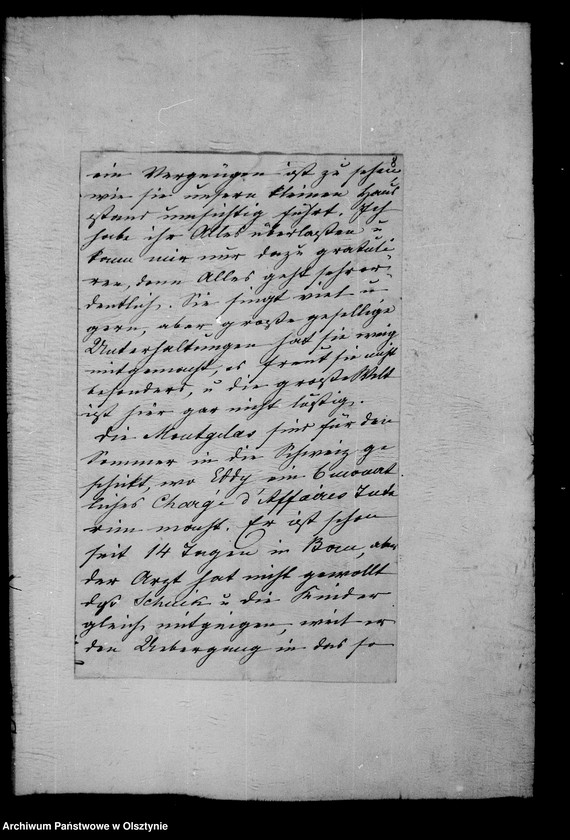 8
ein Vergnügen ist zu sehen
wie sie unsern kleinen Haus
stand umsichtig führt. Ich
habe ihr Alles überlassen u
kann mir nur dazu gratuli
ren, denn Alles geht sehr or-
dentlich. Sie singt viel u
gern, aber große gesellige
Unterhaltungen hat sie wenig
mitgemacht, es freut sie nicht
besonders, u die große Welt
ist hier gar nicht lustig.
Die Montgelas sind für den
Sommer in die Schweiz ge
schickt, wo Eddy ein 6 monat
liches Chargé d'Affaires Inte
rim macht. Er ist schon
seit 14 Tagen in Bern, aber
der Arzt hat nicht gewollt
daß Schuck u die Kinder
gleich mitgingen, weil er
den Uebergang in das so
Archiwum Państwowe w Olsztynie